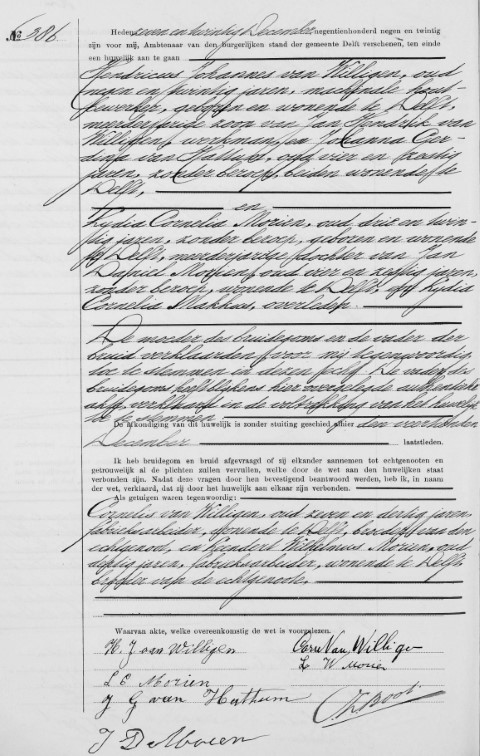 No 386. Heden zeven en twintig December negentienhonderd negen en twintig
zijn voor mij, Ambtenaar van den Burgerlijken stand der gemeente Delft verschenen, ten einde
een huwelijk aan te gaan
Hendricus Johannes van Willigen, oud
negen en twintig jaren, machinale hout-
bewerker, geboren en wonende te Delft,
meerderjarige zoon van Jan Hendrik van
Willigen, werkman, en Johanna Ger-
dina van Hattum, oud vier en zestig
jaren, zonder beroep, beiden wonende te
Delft,
en
Lydia Cornelia Morien, oud drie en twin-
tig jaren, zonder beroep, geboren en wonende
te Delft, meerderjarige dochter van Jan
Daniel Morien, oud vier en zestig jaren,
zonder beroep, wonende te Delft, en Lydia
Cornelia Makkus, overleden.
De moeder des bruidegoms en de vader der
bruid verklaarden voor mij tegenwoordig
toe te stemmen in dezen echt. De vader des
bruidegoms heeft blijkens hier overgelegde authentieke
akte, verklaard in de voltrekking van het huwelijk
toe te stemmen
De afkondiging van dit huwelijk is zonder stuiting geschied alhier den veertienden
December laatstleden.
Ik heb bruidegom en bruid afgevraagd of zij elkander aannemen tot echtgenooten en
getrouwelijk al de plichten zullen vervullen, welke door de wet aan den huwelijken staat
verbonden zijn. Nadat deze vragen door hen bevestigend beantwoord werden, heb ik, in naam
der wet, verklaard, dat zij door het huwelijk aan elkaar zijn verbonden.
Als getuigen waren tegenwoordig:
Cornelis van Willigen, oud zeven en dertig jaren,
fabrieksarbeider, wonende te Delft, broeder van den
echtgenoot, en Leendert Wilhelmus Morien, oud
dertig jaren, fabrieksarbeider, wonende te Delft,
broeder van de echtgenoote,
Waarvan akte, welke overeenkomstig de wet is voorgelezen.
H. J van Willigen Corn Van Willige
L C Morien L W Morien
J G van Hattum
J D Morien